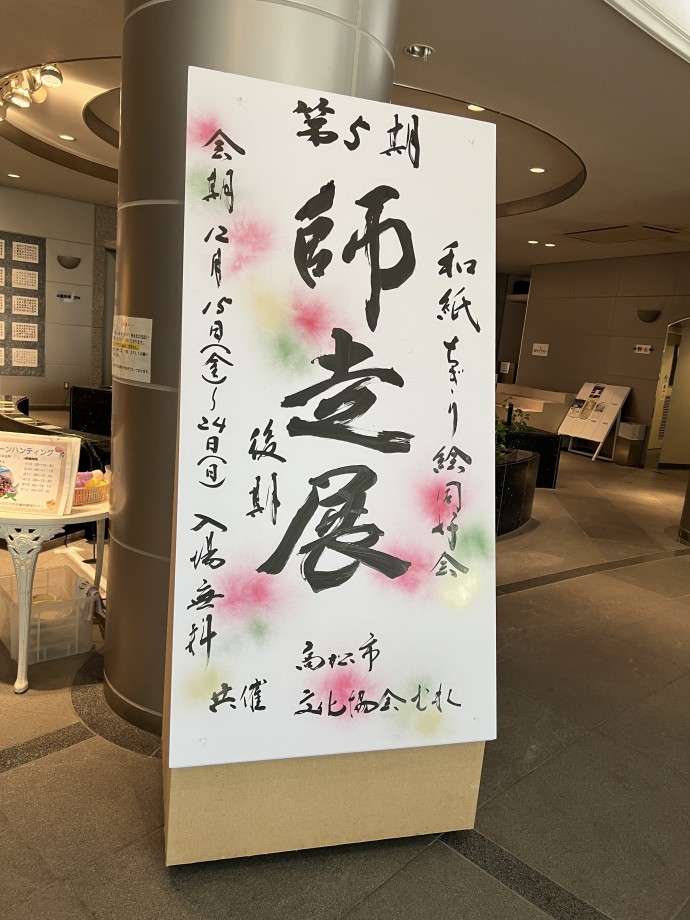 第5期
和紙ちぎり絵同好会
師走展
後期
会期 12月15日(金)~24日(日) 入場無料
共催
高松市
文化協会むれ
ーンハンティング